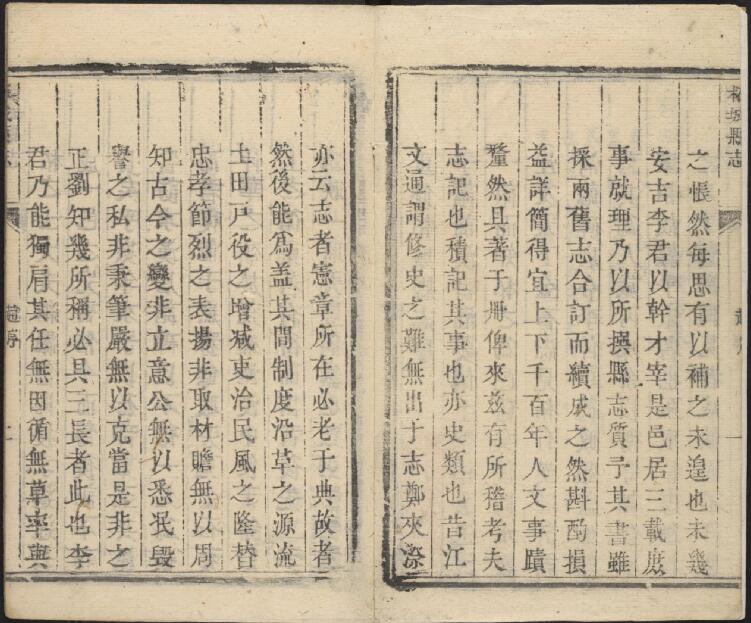 柘城縣志
趙序
一
之悵然每思有以補之未遑也未幾
安吉李君以幹才宰是邑居三載庶
事就理乃以所撰縣志質予其書雖
採兩舊志合訂而續成之然斟酌損
益詳簡得宜上下千百年人文事蹟
釐然具著于冊俾來茲有所稽考夫
志記也積記其事也亦史類也昔江
文通謂修史之難無出于志鄭夾漈
亦云志者憲章所在必老于典故者
然後能爲盖其間制度沿革之源流
土田戸役之增减吏治民風之隆替
忠孝節烈之表揚非取材贍無以周
知古今之變非立意公無以悉泯毀
譽之私非秉筆嚴無以克當是非之
正劉知幾所稱必具三長者此也李
君乃能獨肩其任無因循無草率與
趙序